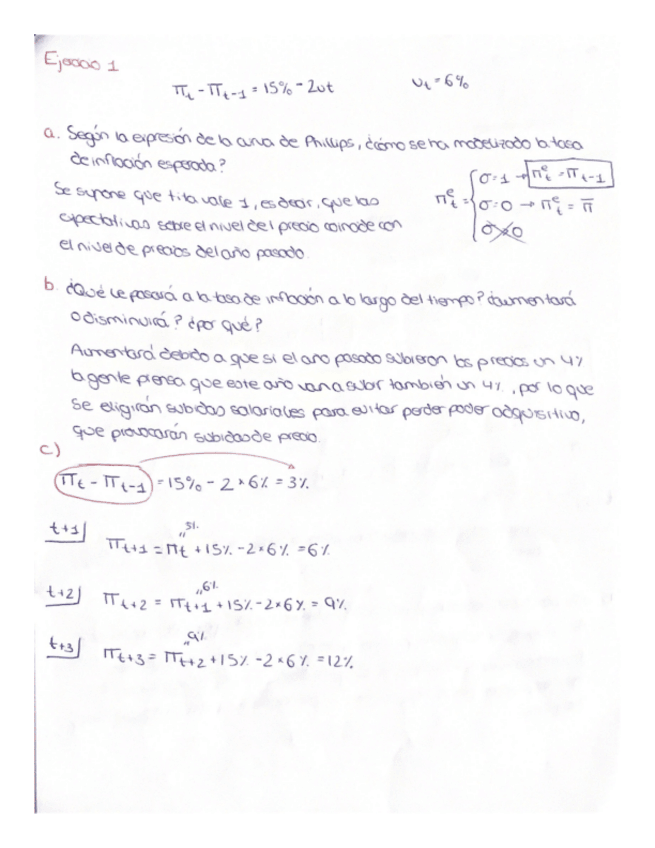 Ejercicio 1
π_t - π_{t-1} = 15% - 2ut    u_t = 6%
a. Según la expresión de la curva de Phillips, ¿cómo se ha modelizado la tasa
de inflación esperada?
Se supone que tita vale 1, es decir, que las
expectativas sobre el nivel del precio coincide con
el nivel de precios del año pasado.
π^e_t = { σ=1 → π^e_t = π_{t-1}
σ=0 → π^e_t = π̄
σ>0
b. ¿Qué le pasará a la tasa de inflación a lo largo del tiempo? ¿aumentará
o disminuirá? ¿por qué?
Aumentará debido a que si el año pasado subieron los precios un 4%
la gente piensa que este año van a subir también un 4%, por lo que
se eligirán subidas salariales para evitar perder poder adquisitivo,
que provocarán subidas de precio.
c)
π_t - π_{t-1} = 15% - 2×6% = 3%
t+1 π_{t+1} = π_t + 15% - 2×6% = 6%
6%
t+2 π_{t+2} = π_{t+1} + 15% - 2×6% = 9%
9%
t+3 π_{t+3} = π_{t+2} + 15% - 2×6% = 12%